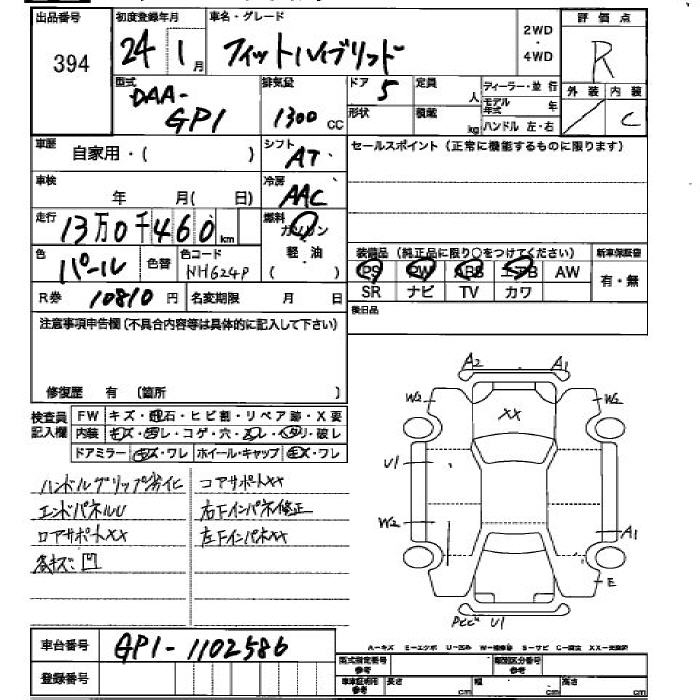 出品番号 初度登録年月 車名・グレード 2WD・4WD 評価点
394 24 1月 フィットハイブリッド R
外装 内装
／ C
型式 DAA-GP1 排気量 1300 CC ドア 5 定員 人 ディーラー・並行
形状 積載 kg モデル年式 年
ハンドル 左・右
車歴 自家用・( ) シフト AT セールスポイント (正常に機能するものに限ります)
車検 年 月( 日) 冷房 AAC
走行 13万0千460km 燃料 ガソリン 軽油 ( )
色 パール 色替 色コード NH624P
装備品 (純正品に限り○をつけてください) 新車保証書
PS PW ABS エアB AW 有・無
SR ナビ TV カワ
R券 10810円 名変期限 月 日 後日品
注意事項申告欄(不具合内容等は具体的に記入して下さい)
修復歴 有 (箇所 )
検査員記入欄 FW キズ・飛石・ヒビ割・リペア跡・X要
内装 キズ・汚レ・コゲ・穴・スレ・ハガリ・破レ
ドアミラー キズ・ワレ ホイール・キャップ キズ・ワレ
ハンドルグリップ劣化 コアサポートXX
エンドパネルU 右Fインパネ修正
ロアサポートXX 左FインパネXX
各キズ凹
A2 A1
W2 XX W2
U1
W2 A1
E
U1
車台番号 GP1-1102586
登録番号
A-キズ E-エクボ U-凹み W-補修跡 S-サビ C-腐食 XX-交換済
型式指定番号 参考 類別区分番号 参考
車車証明用 参考 長さ cm 幅 cm 高さ cm